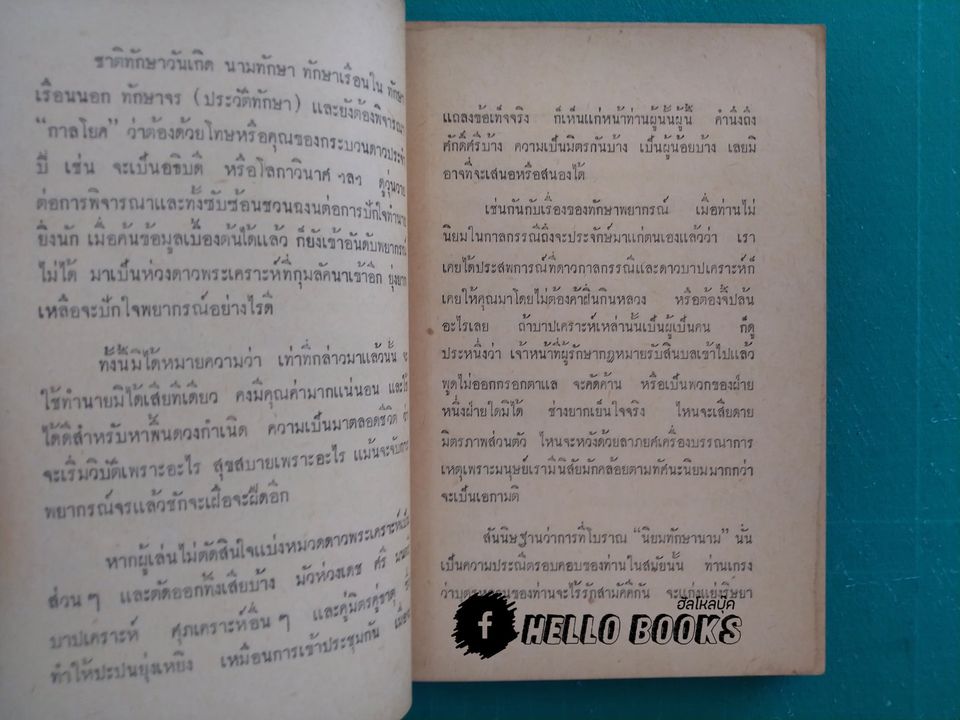 ชาติทักษาวันเกิด นามทักษา ทักษาเรือนใน ทักษา
เรือนนอก ทักษาจร (ประวัติทักษา) และยังต้องพิจารณา
“กาลโยค” ว่าต้องด้วยโทษหรือคุณของกระบวนดาวประจำ
ปี เช่น จะเป็นอธิบดี หรือโลกาวินาศ ฯลฯ ดูวุ่นวาย
ต่อการพิจารณาและทั้งซับซ้อนชวนฉงนต่อการปักใจทำนาย
ยิ่งนัก เมื่อค้นข้อมูลเบื้องต้นได้แล้ว ก็ยังเข้าอันดับพยากรณ์
ไม่ได้ มาเป็นห่วงดาวพระเคราะห์ที่กุมลัคนาเข้าอีก ยุ่งยาก
เหลือจะปักใจพยากรณ์อย่างไรดี
ทั้งนี้มิได้หมายความว่า เท่าที่กล่าวมาแล้วนั้น จะ
ใช้ทำนายมิได้เสียทีเดียว คงมีคุณค่ามากแน่นอน และใช้
ได้ดีสำหรับหาพื้นดวงกำเนิด ความเป็นมาตลอดชีวิต
จะเริ่มวิบัติเพราะอะไร สุขสบายเพราะอะไร แม้นจะจับการ
พยากรณ์จรแล้วชักจะเฝือจะฝืดอีก
หากผู้เล่นไม่ตัดสินใจแบ่งหมวดดาวพระเคราะห์เป็น
ส่วน ๆ และตัดออกทิ้งเสียบ้าง มัวห่วงเดช ศรี มนตรี
บาปเคราะห์ ศุภเคราะห์อื่น ๆ และคู่มิตรคู่ธาตุ
ทำให้ปะปนยุ่งเหยิง เหมือนการเข้าประชุมกัน เมื่อ
แถลงข้อเท็จจริง ก็เห็นแก่หน้าท่านผู้นั้นผู้นี้ คำนึงถึง
ศักดิ์ศรีบ้าง ความเป็นมิตรกันบ้าง เป็นผู้น้อยบ้าง เลยมิ
อาจที่จะเสนอหรือสนองได้
เช่นกันกับเรื่องของทักษาพยากรณ์ เมื่อท่านไม่
นิยมในกาลกรรณีถึงจะประจักษ์มาแก่ตนเองแล้วว่า เรา
เคยได้ประสพการณ์ที่ดาวกาลกรรณีและดาวบาปเคราะห์ก็
เคยให้คุณมาโดยไม่ต้องค้าฝิ่นกินหลวง หรือต้องจี้ปล้น
อะไรเลย ถ้าบาปเคราะห์เหล่านั้นเป็นผู้เป็นคน ก็ดู
ประหนึ่งว่า เจ้าหน้าที่ผู้รักษากฎหมายรับสินบลเข้าไปแล้ว
พูดไม่ออกรอกตาแล จะคัดค้าน หรือเป็นพวกของฝ่าย
หนึ่งฝ่ายใดมิได้ ช่างยากเย็นใจจริง ไหนจะเสียดาย
มิตรภาพส่วนตัว ไหนจะหวังด้วยลาภยศเครื่องบรรณาการ
เหตุเพราะมนุษย์เรามีนิสัยมักคล้อยตามทัศนะนิยมมากกว่า
จะเป็นเอกามติ
สันนิษฐานว่าการที่โบราณ “นิยมทักษานาม” นั้น
เป็นความประณีตรอบคอบของท่านในสมัยนั้น ท่านเกรง
ว่าบุตรหลานของท่านจะไร้รักสามัคคีกัน จะแก่งแย่งริษยา
ฮัลโหลบุ๊ค
f HELLO BOOKS